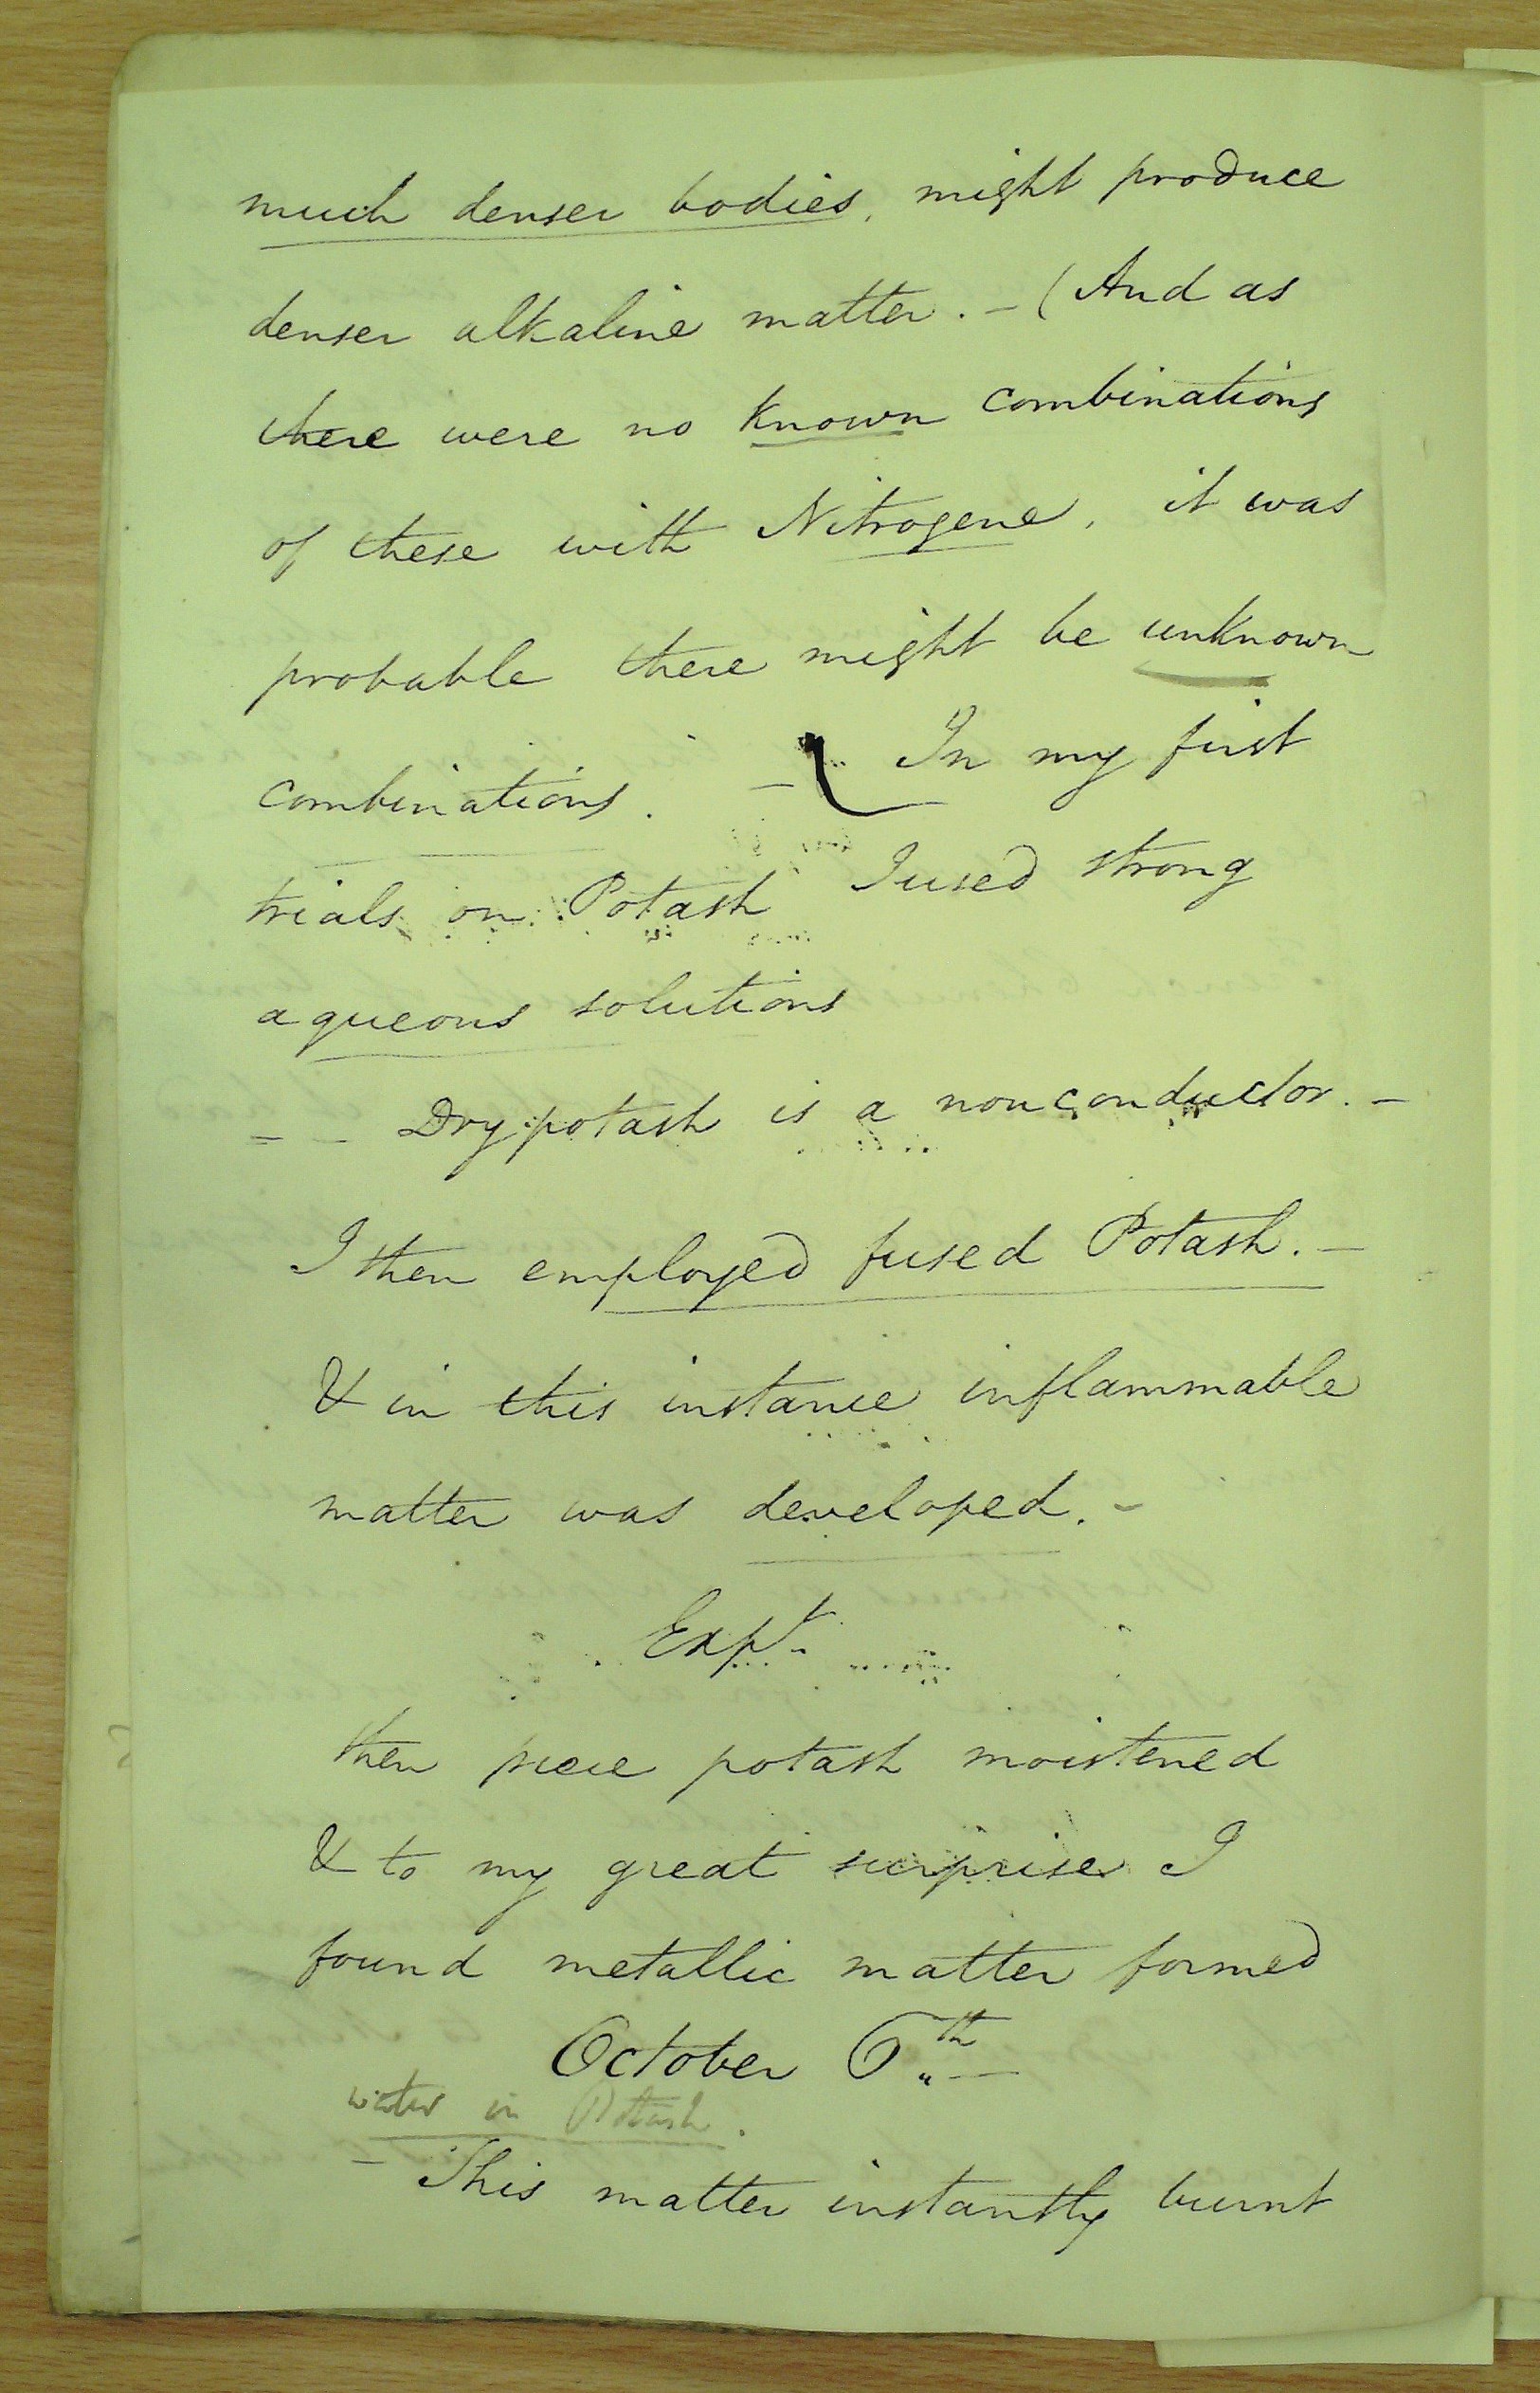 much denser bodies, might produce
denser alkaline matter. – (And as
there were no known combinations
of these with Nitrogene, it was
probable there might be unknown
combinations. – In my first
trials on Potash I used strong
aqueous solutions
– – Dry potash is a nonconductor. –
I then employed fused Potash. –
& in this instance inflammable
matter was developed. –
Expt.
then piece potash moistened
& to my great surprise I
found metallic matter formed
October 6th –
water in Potash.
– This matter instantly burnt